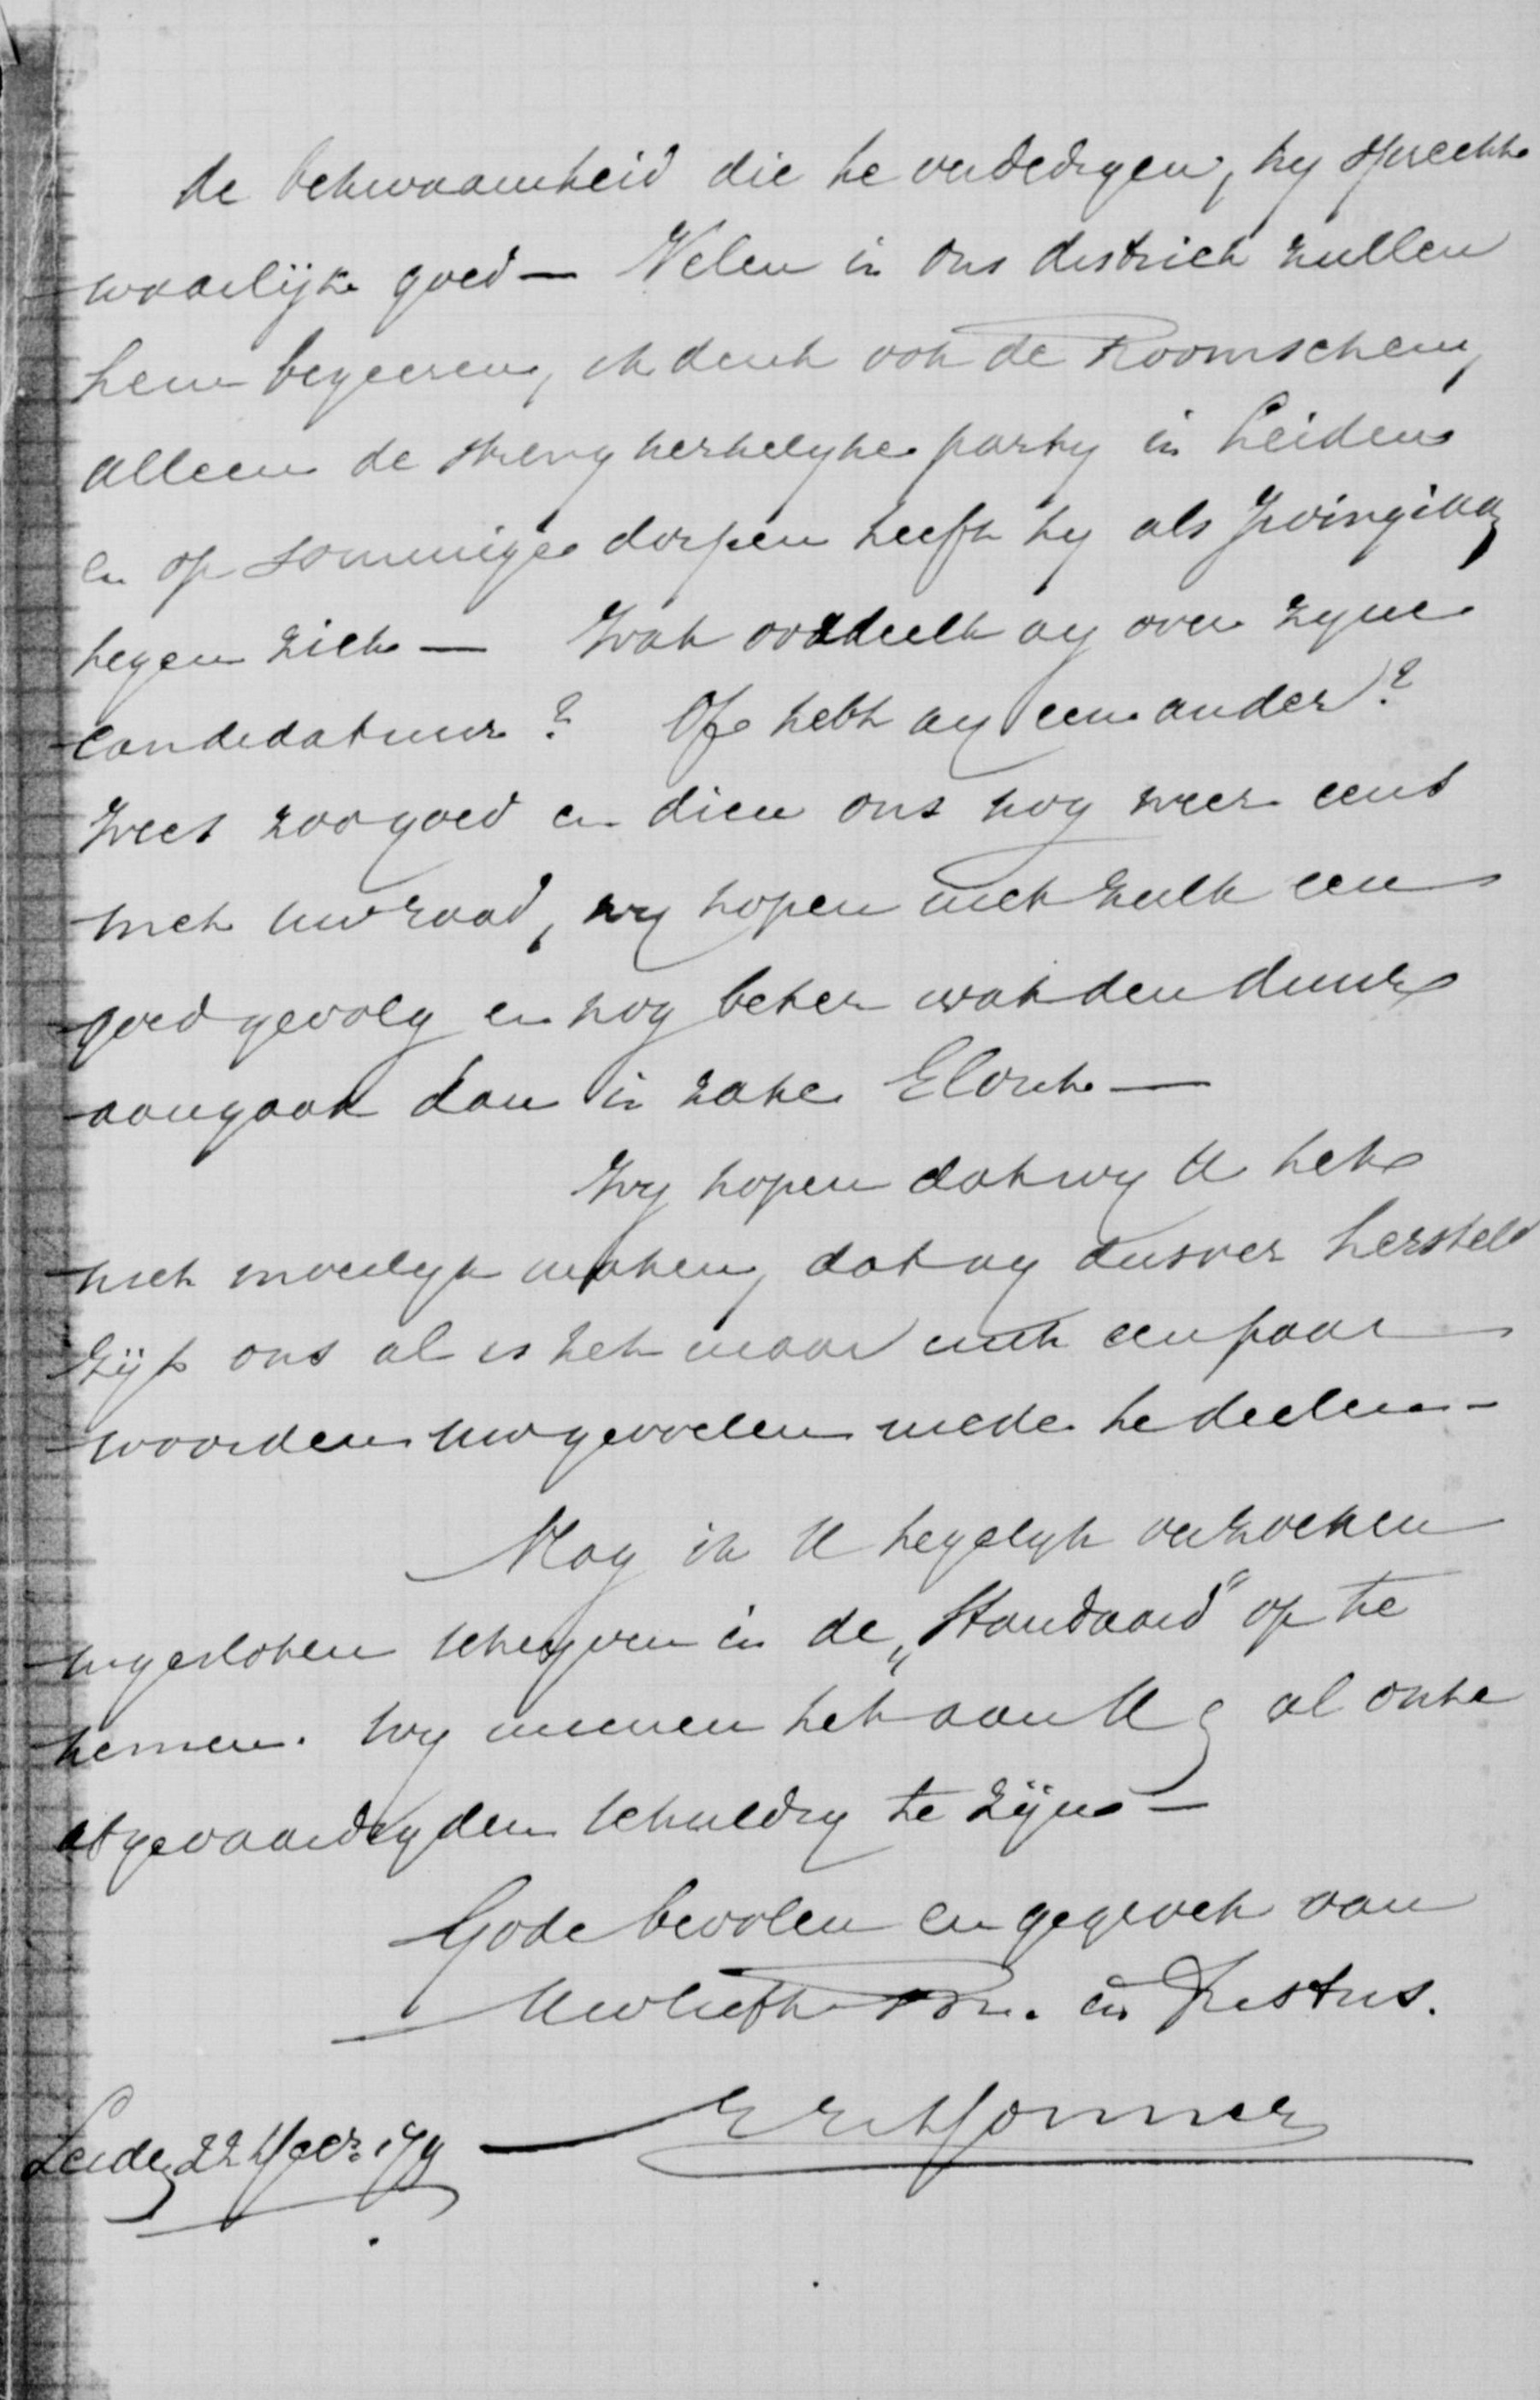 de bekwaamheid die te verdedigen, hy spreekt
waarlijk goed — Velen in ons district zullen
hem begeeren, ik denk ook de Roomschen,
alleen de streng kerkelyke party in Leiden
en op sommige dorpen heeft hy als Irvingiaan
tegen zich — Wat oordeelt gy over zyne
candidatuur? Of hebt gy een ander?
Wees zoo goed en dien ons nog weer eens
met uw raad, wy hopen met zulk een
goed gevolg en nog beter wat den duur
aangaat dan in zake Elout —
Wy hopen dat wy U het
niet moeilyk maken, dat gy dusver hersteld
zijt ons al is het maar met een paar
woorden uw gevoelen mede te deelen —
Mag ik U tegelyk verzoeken
ingesloten schryven in de „Standaard" op te
nemen. Wy meenen het aan U & al onze
afgevaardigden schuldig te zijn —
Gode bevolen en gegroet van
Uw liefh Br. in Xristus.
Leiden 22 1879